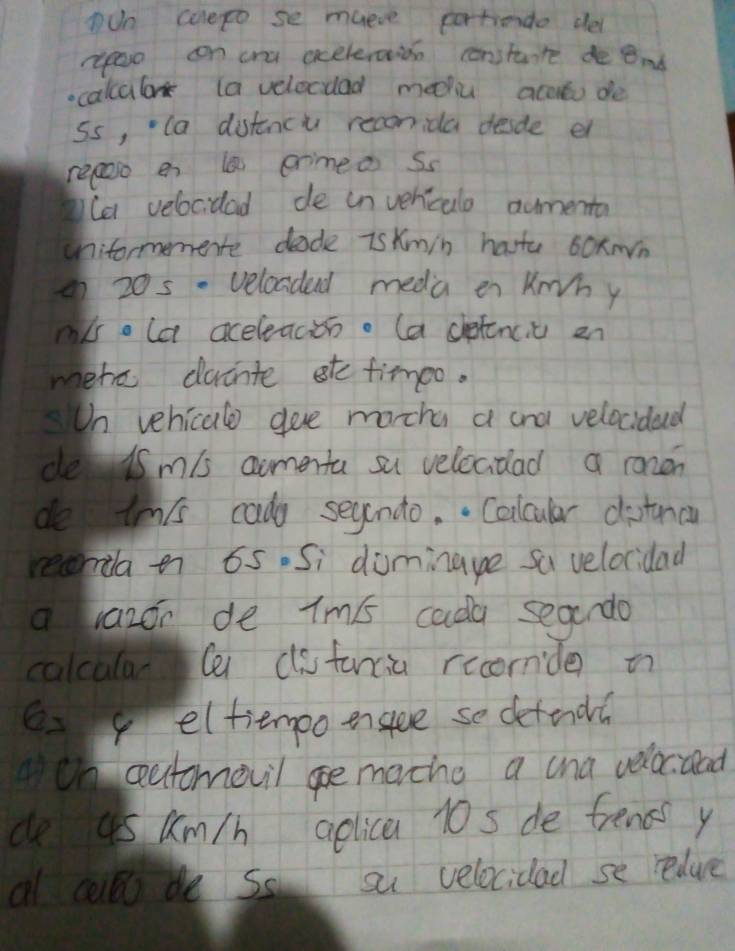 1) Un cuerpo se mueve partiendo del
reposo con una aceleración constante de 8
• calcular la velocidad media acabo de
5s, • la distancia recorrida desde el
reposo en los primeros 5s
2) La velocidad de un vehiculo aumenta
uniformemente desde 15 Km/h hasta 60Km/h
en 20 s • velocidad media en Km/h y
m/s • la aceleración • la distancia en
metro durante este tiempo.
3) Un vehiculo que marcha a una velocidad
de 15 m/s aumenta su velocidad a razón
de 1m/s cada segundo. • Calcular distancia
recorrida en 6s • Si disminuye su velocidad
a razón de 1m/s cada segundo
calcular la distancia recorrida en
6s y el tiempo en que se detendrá
4) Un automovil que marcha a una velocidad
de 45 Km/h aplica 10 s de frenos y
al cabo de 5s su velocidad se reduce